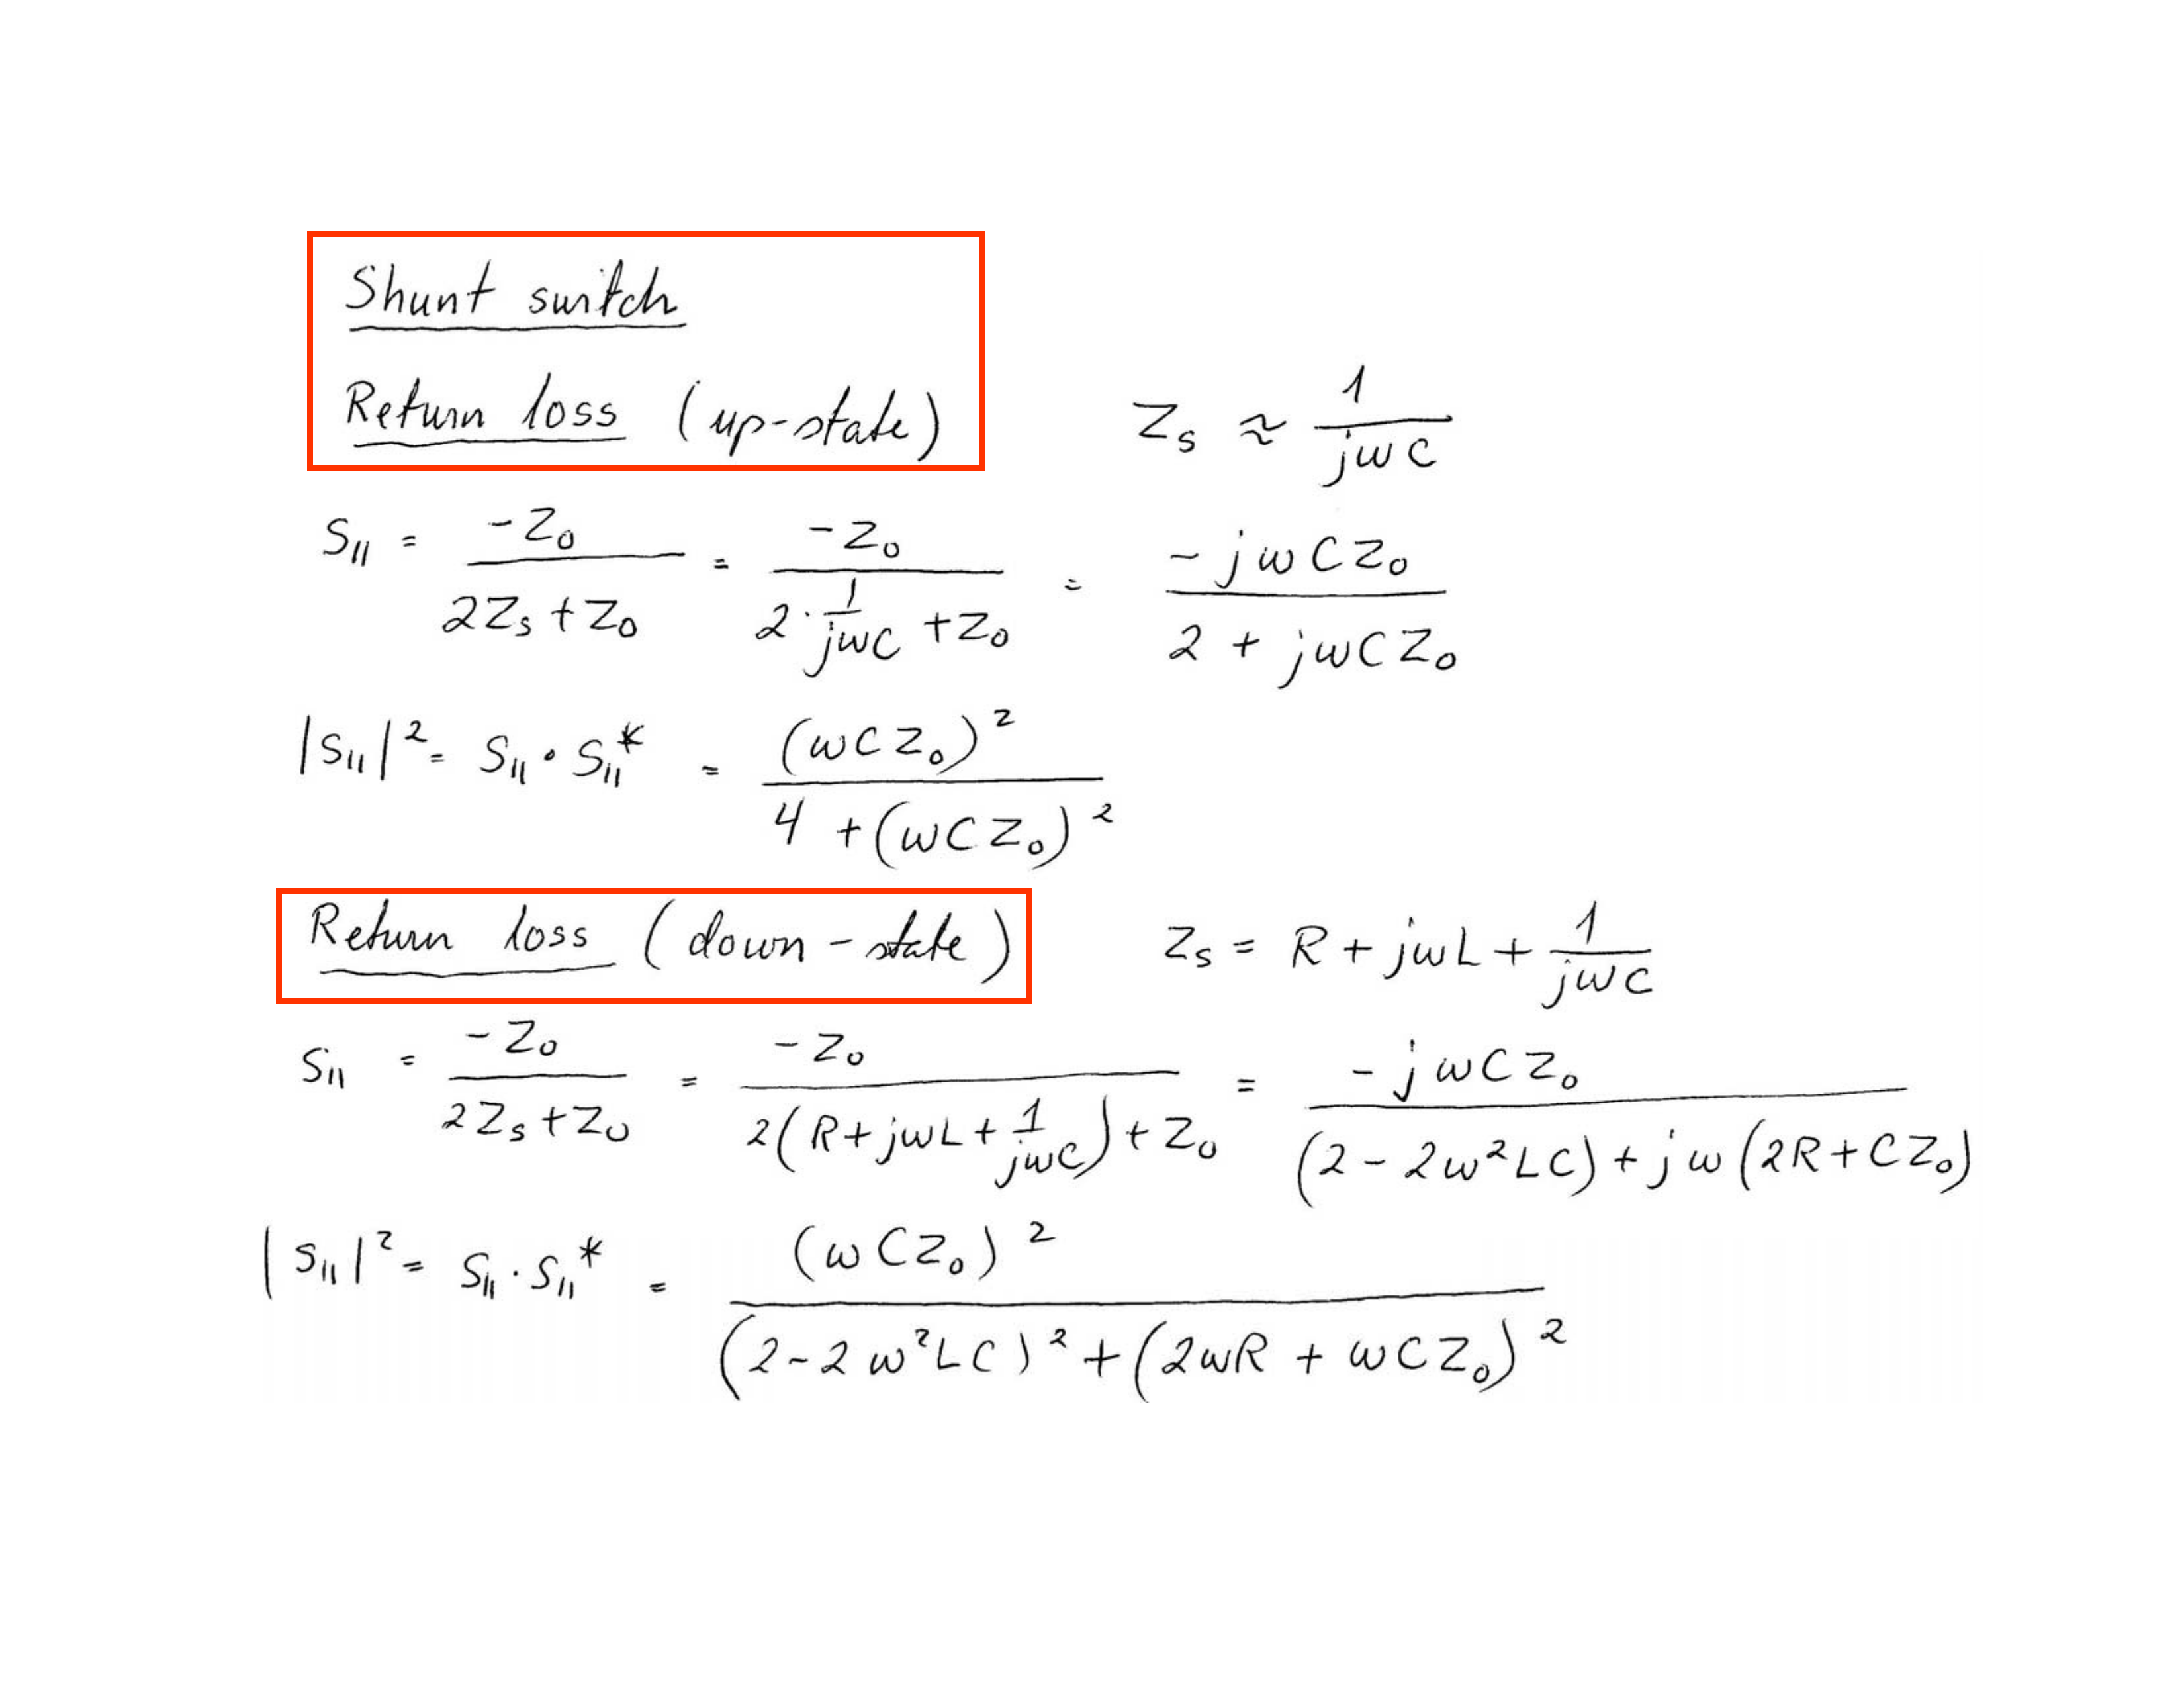 Shunt switch
Return loss (up-state) Z_s ≈ 1/(jωC)
S_11 = -Z_0/(2Z_s + Z_0) = -Z_0/(2·1/(jωC) + Z_0) = -jωCZ_0/(2 + jωCZ_0)
|S_11|^2 = S_11 · S_11^* = (ωCZ_0)^2/(4 + (ωCZ_0)^2)
Return loss (down-state) Z_s = R + jωL + 1/(jωC)
S_11 = -Z_0/(2Z_s + Z_0) = -Z_0/(2(R + jωL + 1/(jωC)) + Z_0) = -jωCZ_0/((2 - 2ω^2LC) + jω(2R + CZ_0))
|S_11|^2 = S_11 · S_11^* = (ωCZ_0)^2/((2 - 2ω^2LC)^2 + (2ωR + ωCZ_0)^2)